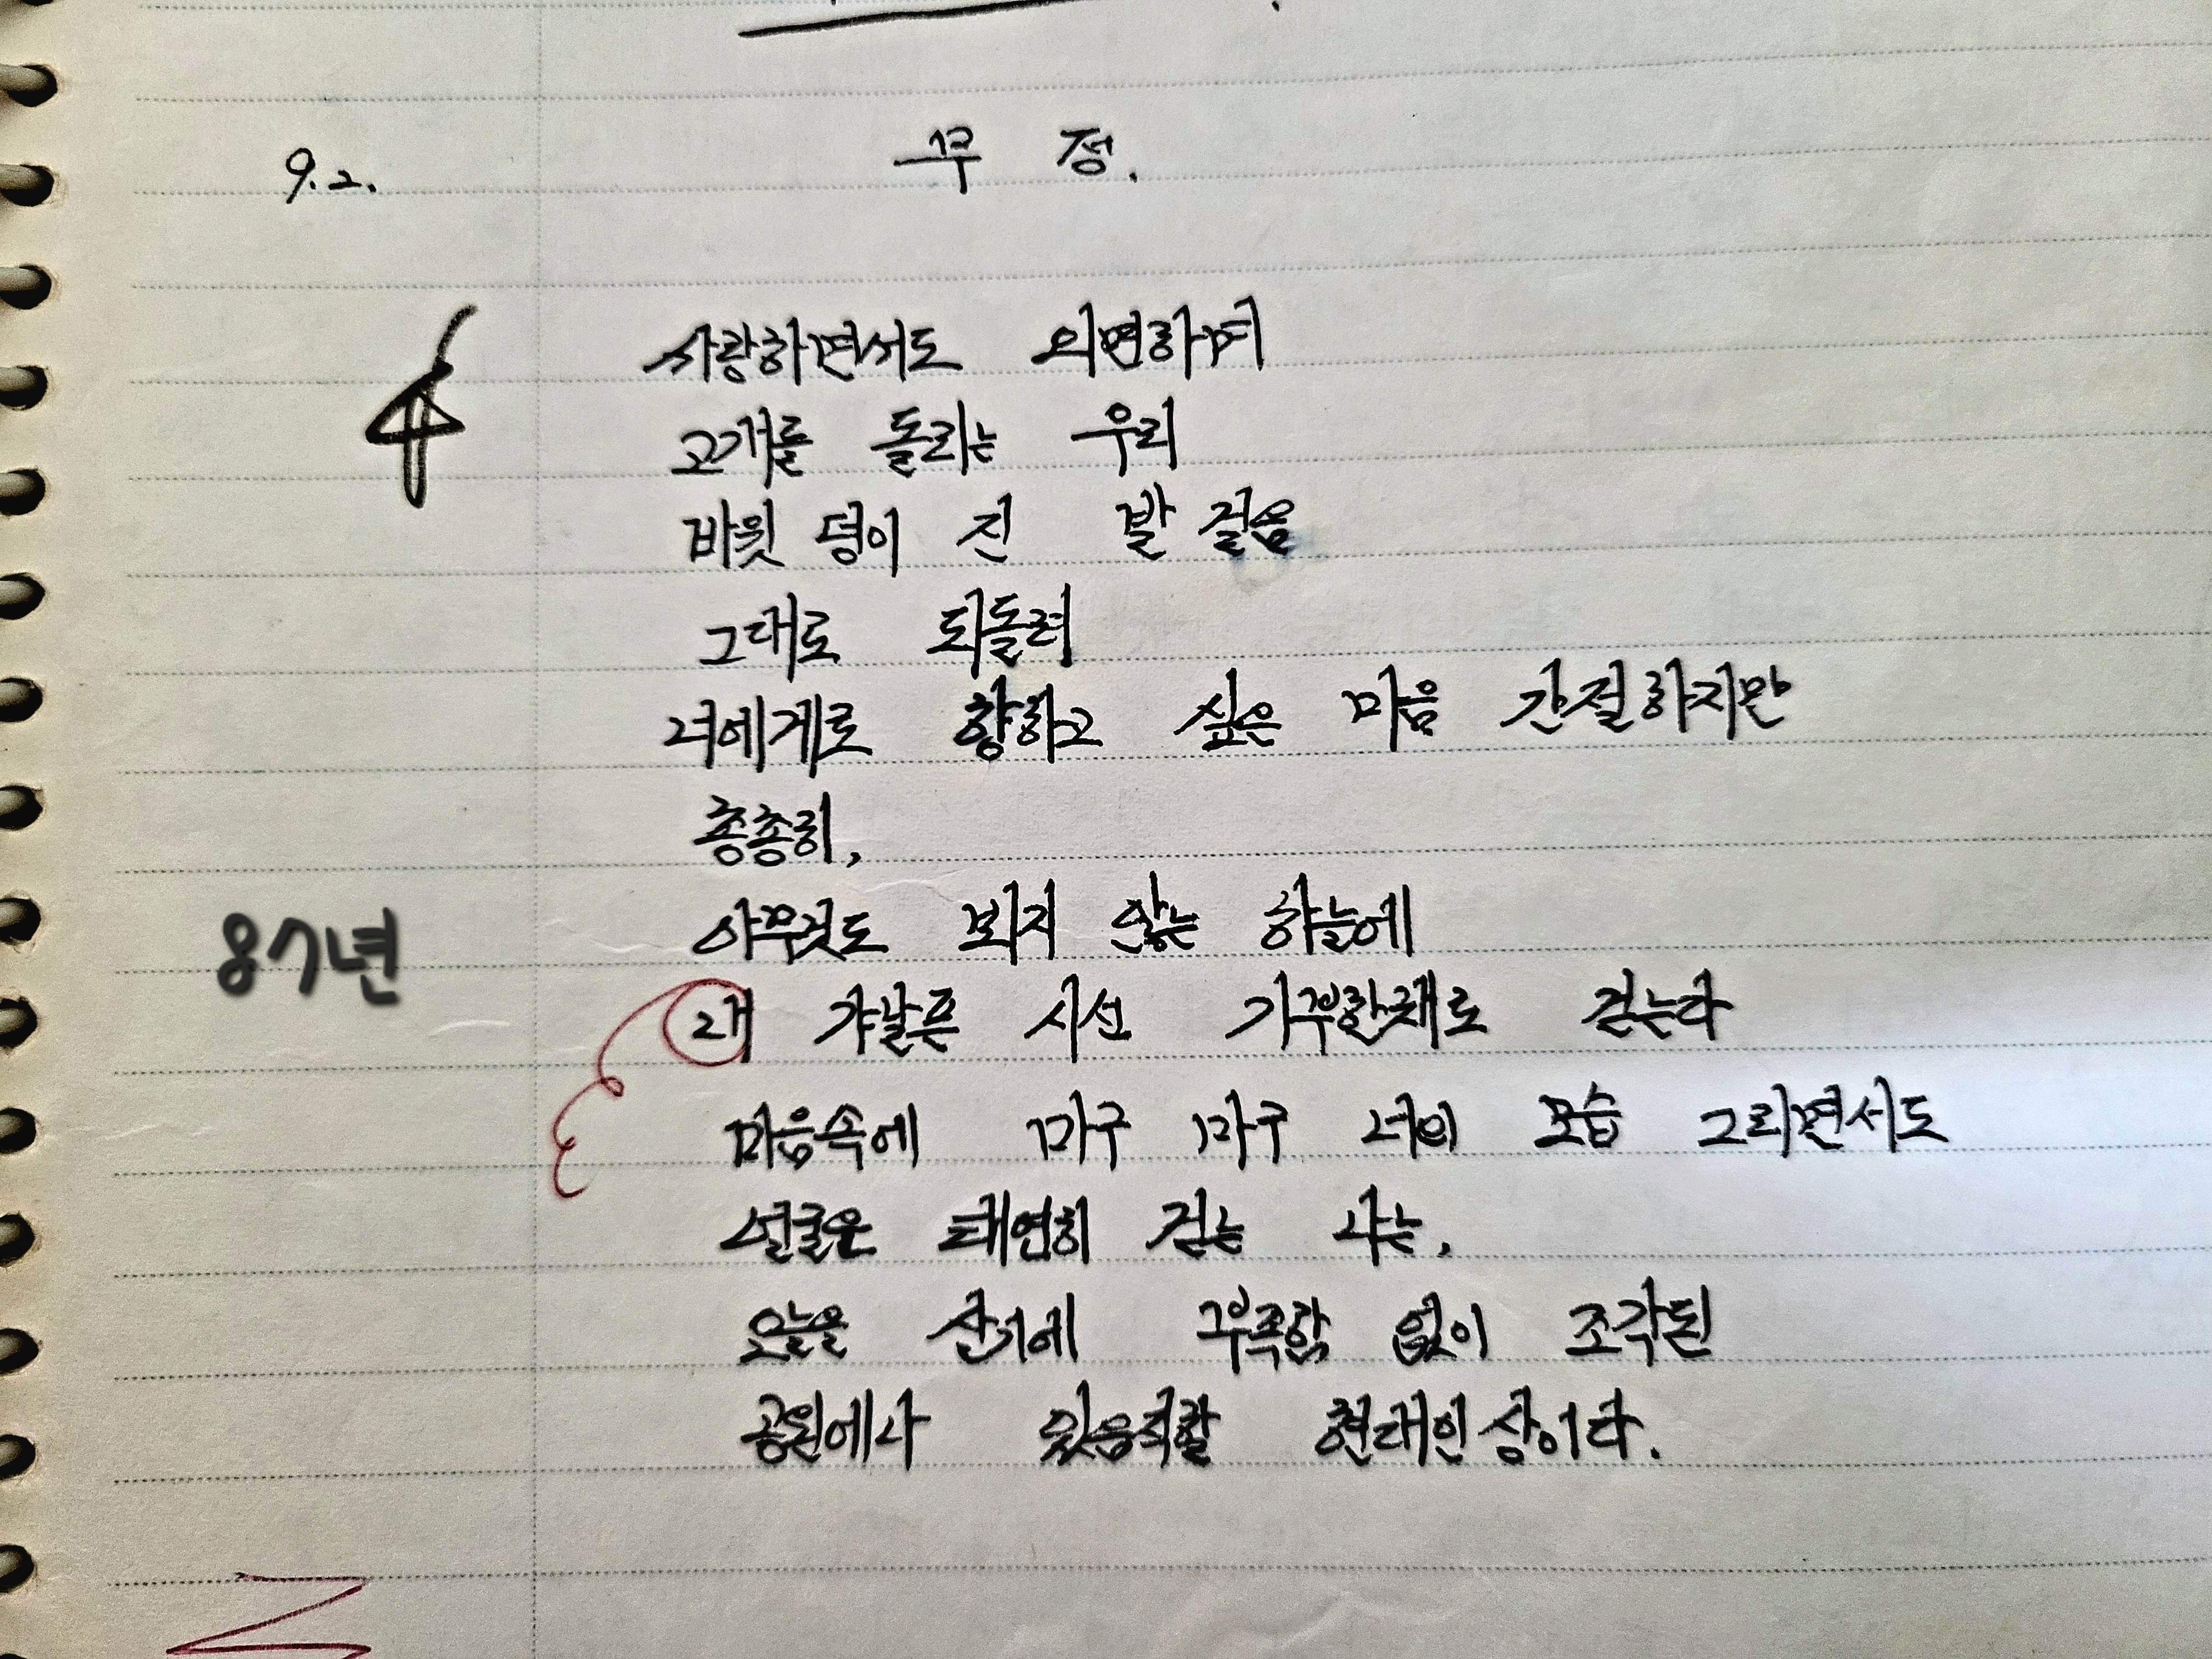 9.2. 무 정.
사랑하면서도 외면하며
고개를 돌리는 우리
바윗 덩이 진 발 걸음
그대로 되돌려
너에게로 향하고 싶은 마음 간절하지만
총총히,
아무것도 뵈지 않는 하늘에
87년
내 갸날픈 시선 기부한채로 걷는다
마음속에 마구 마구 너의 모습 그리면서도
얼굴은 태연히 걷는 나는,
오늘을 살기에 부족함 없이 조각된
공원에나 있음직할 현대인상이다.